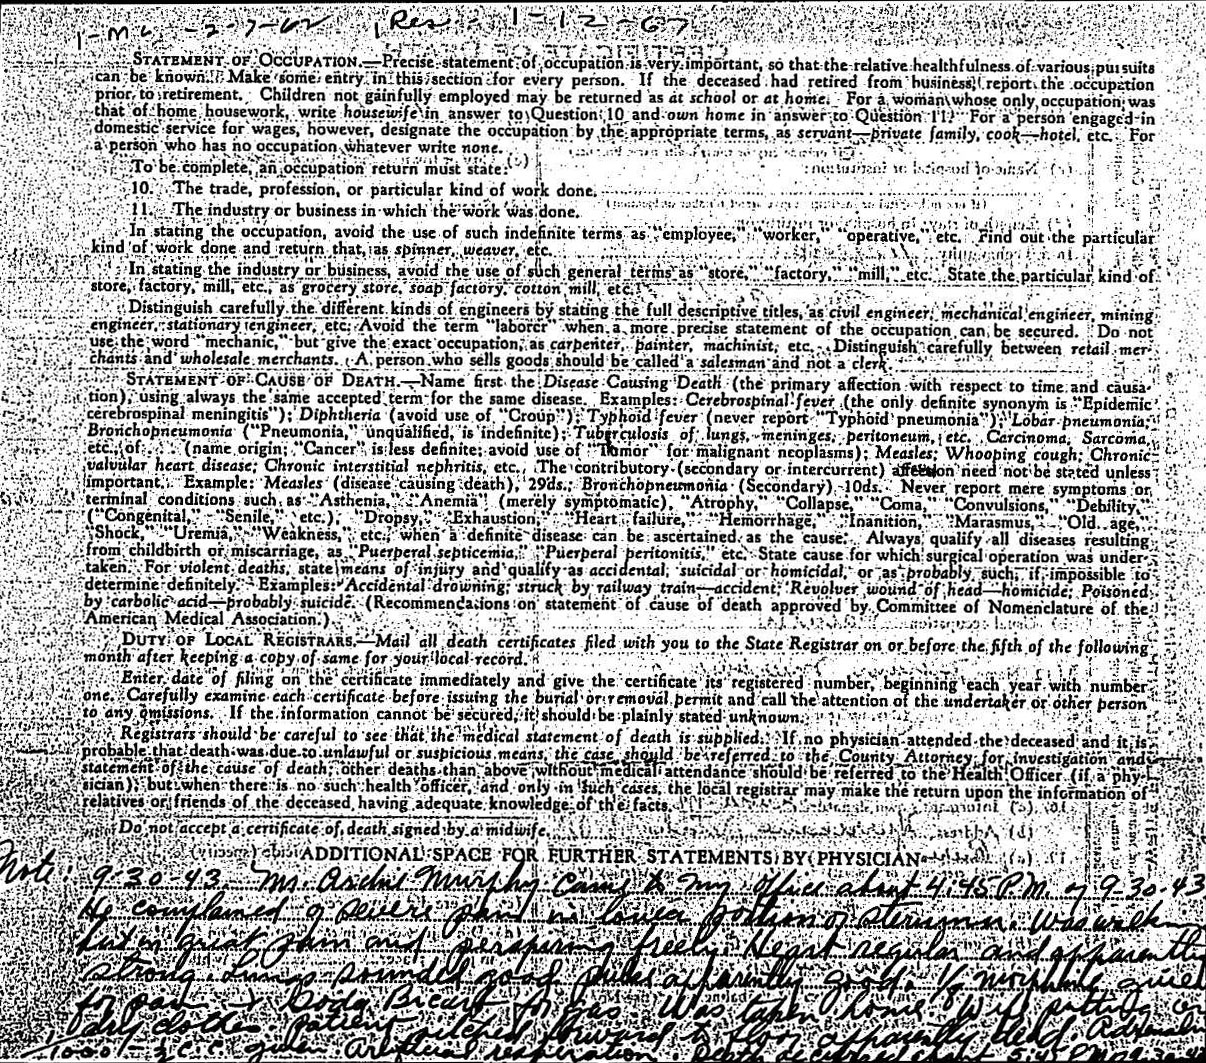 1-12-67
STATEMENT OF OCCUPATION.—Precise statement of occupation is very important, so that the relative healthfulness of various pursuits
can be known. Make some entry in this section for every person. If the deceased had retired from business, report the occupation
prior to retirement. Children not gainfully employed may be returned as at school or at home. For a woman whose only occupation was
that of home housework, write housewife in answer to Question 10 and own home in answer to Question 11. For a person engaged in
domestic service for wages, however, designate the occupation by the appropriate terms, as servant—private family, cook—hotel, etc. For
a person who has no occupation whatever write none.
To be complete, an occupation return must state:
10. The trade, profession, or particular kind of work done.
11. The industry or business in which the work was done.
In stating the occupation, avoid the use of such indefinite terms as "employee," "worker," "operative," etc. Find out the particular
kind of work done and return that, as spinner, weaver, etc.
In stating the industry or business, avoid the use of such general terms as "store," "factory," "mill," etc. State the particular kind of
store, factory, mill, etc., as grocery store, soap factory, cotton mill, etc.
Distinguish carefully the different kinds of engineers by stating the full descriptive titles, as civil engineer, mechanical engineer, mining
engineer, stationary engineer, etc. Avoid the term "laborer" when a more precise statement of the occupation can be secured. Do not
use the word "mechanic," but give the exact occupation, as carpenter, painter, machinist, etc. Distinguish carefully between retail mer-
chants and wholesale merchants. A person who sells goods should be called a salesman and not a clerk.
STATEMENT OF CAUSE OF DEATH.—Name first the Disease Causing Death (the primary affection with respect to time and causa-
tion), using always the same accepted term for the same disease. Examples: Cerebrospinal fever (the only definite synonym is "Epidemic
cerebrospinal meningitis"); Diphtheria (avoid use of "Croup"); Typhoid fever (never report "Typhoid pneumonia"); Lobar pneumonia;
Bronchopneumonia ("Pneumonia," unqualified, is indefinite); Tuberculosis of lungs, meninges, peritoneum, etc. Carcinoma, Sarcoma,
etc., of . . . (name origin; "Cancer" is less definite; avoid use of "Tumor" for malignant neoplasms); Measles; Whooping cough; Chronic
valvular heart disease; Chronic interstitial nephritis, etc. The contributory (secondary or intercurrent) affection need not be stated unless
important. Example: Measles (disease causing death), 29ds.; Bronchopneumonia (Secondary) 10ds. Never report mere symptoms or
terminal conditions such as "Asthenia," "Anemia" (merely symptomatic), "Atrophy," "Collapse," "Coma," "Convulsions," "Debility,"
("Congenital," "Senile," etc.), "Dropsy," "Exhaustion," "Heart failure," "Hemorrhage," "Inanition," "Marasmus," "Old age,"
"Shock," "Uremia," "Weakness," etc., when a definite disease can be ascertained as the cause. Always qualify all diseases resulting
from childbirth or miscarriage, as "Puerperal septicemia," "Puerperal peritonitis," etc. State cause for which surgical operation was under-
taken. For violent deaths, state means of injury and qualify as accidental, suicidal or homicidal, or as probably such, if impossible to
determine definitely. Examples: Accidental drowning; struck by railway train—accident; Revolver wound of head—homicide; Poisoned
by carbolic acid—probably suicide. (Recommendations on statement of cause of death approved by Committee of Nomenclature of the
American Medical Association.)
DUTY OF LOCAL REGISTRARS.—Mail all death certificates filed with you to the State Registrar on or before the fifth of the following
month after keeping a copy of same for your local record.
Enter date of filing on the certificate immediately and give the certificate its registered number, beginning each year with number
one. Carefully examine each certificate before issuing the burial or removal permit and call the attention of the undertaker or other person
to any omissions. If the information cannot be secured, it should be plainly stated unknown.
Registrars should be careful to see that the medical statement of death is supplied. If no physician attended the deceased and it is
probable that death was due to unlawful or suspicious means, the case should be referred to the County Attorney for investigation and
statement of the cause of death; other deaths than above without medical attendance should be referred to the Health Officer (if a phy-
sician); but when there is no such health officer, and only in such cases, the local registrar may make the return upon the information of
relatives or friends of the deceased having adequate knowledge of the facts.
Do not accept a certificate of death signed by a midwife.
ADDITIONAL SPACE FOR FURTHER STATEMENTS BY PHYSICIAN
Note: 9-30-43. Mr. Archie Murphy came to my office about 4:45 P.M. of 9-30-43
He complained of severe pain in lower portion of sternum. Was walking
but in great pain and perspiring freely. Heart regular and apparently
strong. Lungs sounded good pulse apparently good. morphine given
for pain Soda Bicarb for gas. Was taken home. Wife putting on
dry clothes. patient pitched forward to floor apparently dead Adrenalin
1/1000 c.c. given artificial respiration.